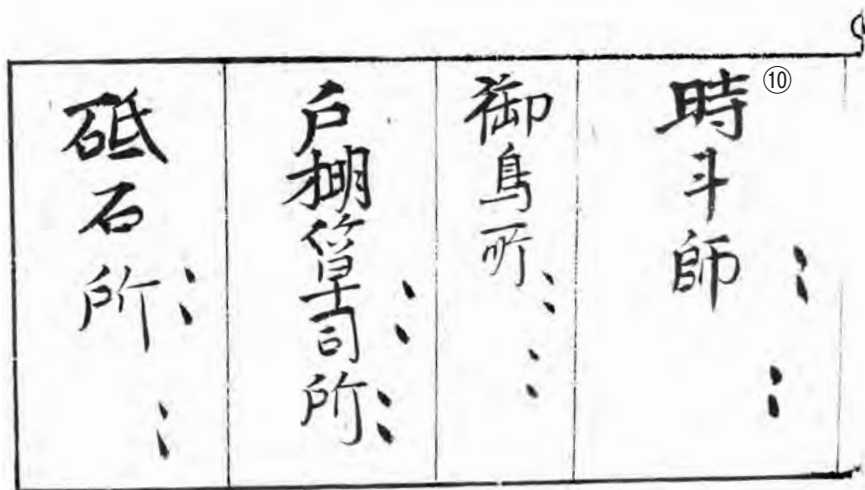 ⑩
時斗師
御鳥所
戸棚箪司所
砥石所